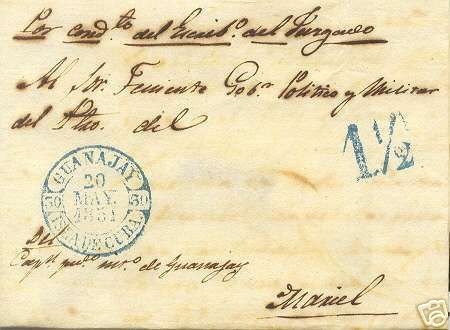 Por cond.to del Escrib.o del Juzgado
Al Sr. Teniente Gob.r Politico y Militar
del Pto. del
1 1/2
GUANAJAY
20
MAY.
1851
30 30
ISLA DE CUBA.
Del
Cap.n de Guanajay
Mariel